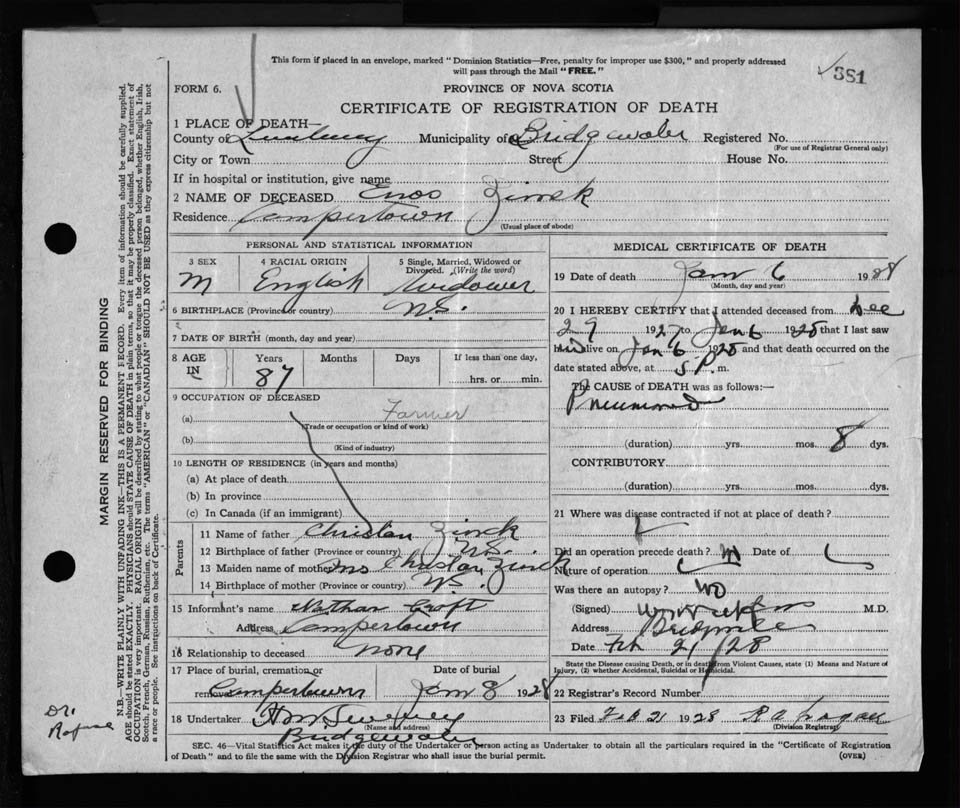 This form if placed in an envelope, marked "Dominion Statistics—Free, penalty for improper use $300," and properly addressed
will pass through the Mail "FREE."
381
FORM 6.
PROVINCE OF NOVA SCOTIA
CERTIFICATE OF REGISTRATION OF DEATH
1 PLACE OF DEATH—
County of Lunenburg Municipality of Bridgewater Registered No.
(For use of Registrar General only)
City or Town Street House No.
If in hospital or institution, give name
2 NAME OF DECEASED Enos Zinck
Residence Campertown
(Usual place of abode)
PERSONAL AND STATISTICAL INFORMATION
3 SEX 4 RACIAL ORIGIN 5 Single, Married, Widowed or
Divorced. (Write the word)
M English Widower
6 BIRTHPLACE (Province or country) N.S.
7 DATE OF BIRTH (month, day and year)
8 AGE Years Months Days If less than one day,
IN 87 hrs. or min.
9 OCCUPATION OF DECEASED
(a) Farmer
(Trade or occupation or kind of work)
(b)
(Kind of industry)
10 LENGTH OF RESIDENCE (in years and months)
(a) At place of death
(b) In province
(c) In Canada (if an immigrant)
Parents
11 Name of father Christan Zinck
12 Birthplace of father (Province or country) N.S.
13 Maiden name of mother Mrs Christan Zinck
14 Birthplace of mother (Province or country) N.S.
15 Informant's name Nathan Croft
Address Campertown
16 Relationship to deceased none
17 Place of burial, cremation or Date of burial
removal Campertown Jan 8 1928
18 Undertaker
(Name and address)
Bridgewater
MEDICAL CERTIFICATE OF DEATH
19 Date of death Jan 6 1928
(Month, day and year)
20 I HEREBY CERTIFY that I attended deceased from Dec
29 1927 to Jan 6 1928 that I last saw
him alive on Jan 6 1928 and that death occurred on the
date stated above, at 5 P. m.
The CAUSE OF DEATH was as follows:—
Pneumonia
(duration) yrs. mos. 8 dys.
CONTRIBUTORY
(duration) yrs. mos. dys.
21 Where was disease contracted if not at place of death?
Did an operation precede death? No Date of
Nature of operation
Was there an autopsy? No
(Signed) M.D.
Address
Date Feb 21/28
State the Disease causing Death, or in death from Violent Causes, state (1) Means and Nature of
Injury, (2) whether Accidental, Suicidal or Homicidal.
22 Registrar's Record Number
23 Filed Feb 21 1928
(Division Registrar)
SEC. 46—Vital Statistics Act makes it the duty of the Undertaker or person acting as Undertaker to obtain all the particulars required in the "Certificate of Registration
of Death" and to file the same with the Division Registrar who shall issue the burial permit. (OVER)
MARGIN RESERVED FOR BINDING
N.B.—WRITE PLAINLY WITH UNFADING INK—THIS IS A PERMANENT RECORD. Every item of information should be carefully supplied.
AGE should be stated EXACTLY. PHYSICIANS should STATE CAUSE OF DEATH in plain terms, so that it may be properly classified. Exact statement of
OCCUPATION is very important. RACIAL ORIGIN will be described by stating to what people or tongue the deceased person belonged, whether English, Irish,
Scotch, French, German, Russian, Ruthenian, etc. The terms "AMERICAN" or "CANADIAN" SHOULD NOT BE USED as they express citizenship but not
a race or people. See instructions on back of Certificate.
Dr.